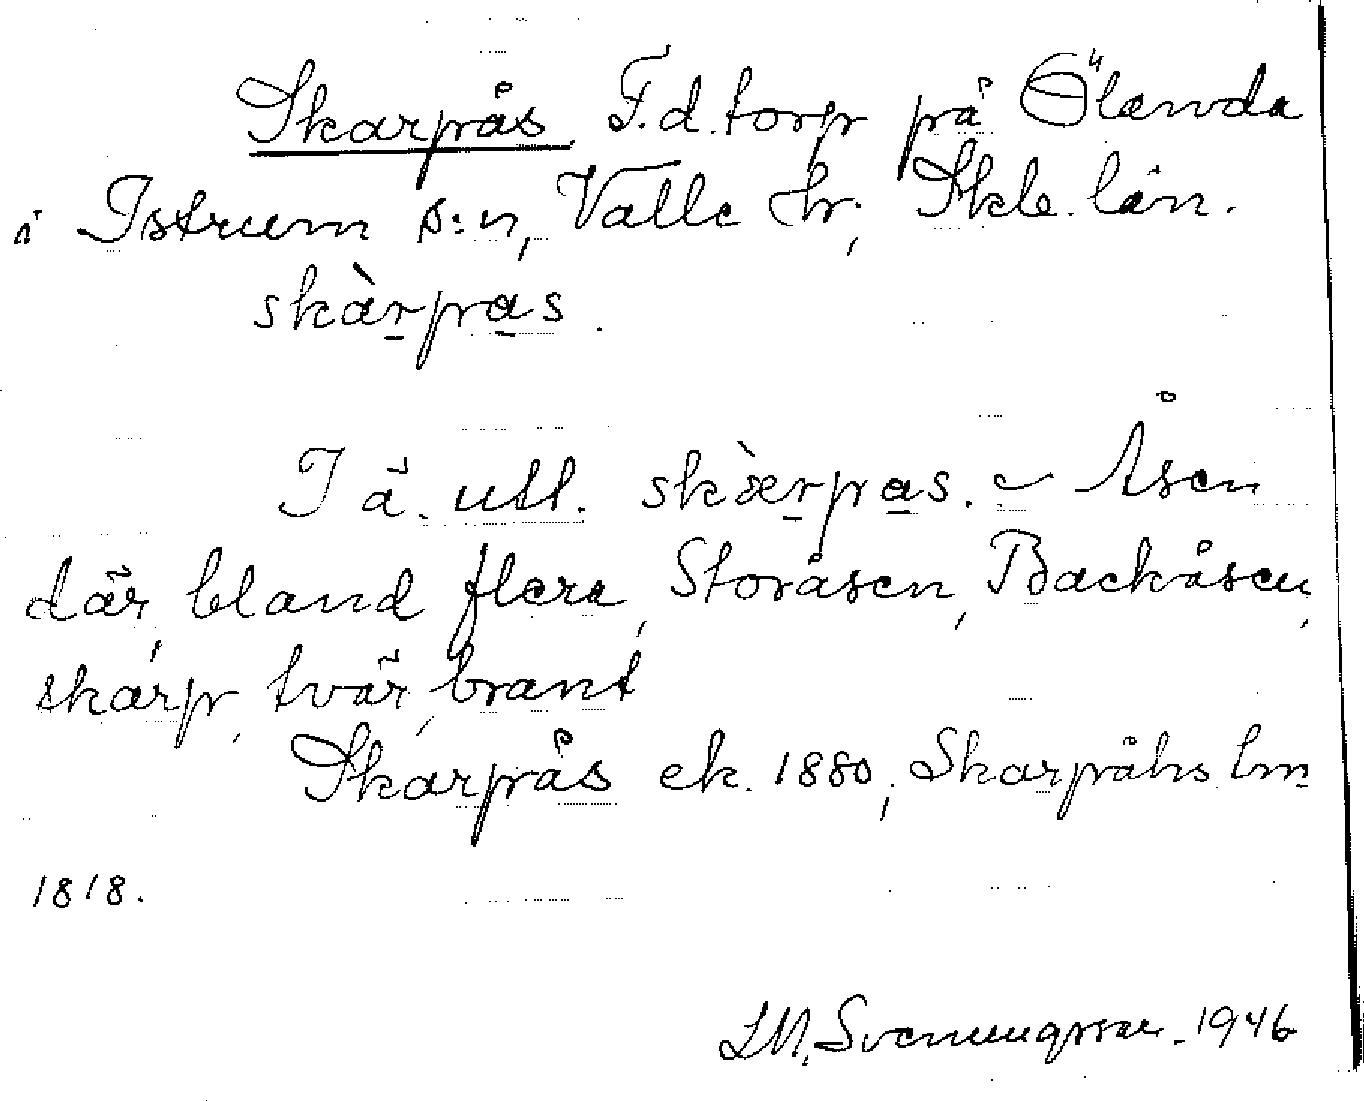 Skarpås. F.d. torp på Ölanda
i Istrum s:n, Valle hr; Skb. län.
skàrpas.
I ä. utt. skærpas. ~ Åsen
där, bland flera, Storåsen, Backåsen,
skarp, tvär, brant
Skarpås ek. 1880, Skarpåhs lm
1818.
Svenungsson. 1946